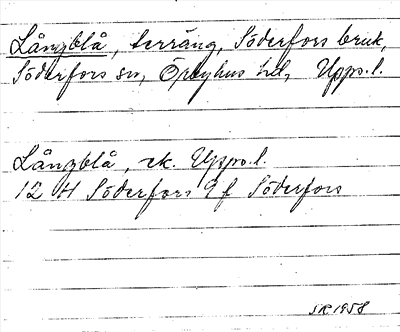 Långblå, terräng, Söderfors bruk,
Söderfors sn, Örbyhus hd, Upps.l.
Långblå, ek. Upps.l.
12 H Söderfors 9 f Söderfors
SR 1958